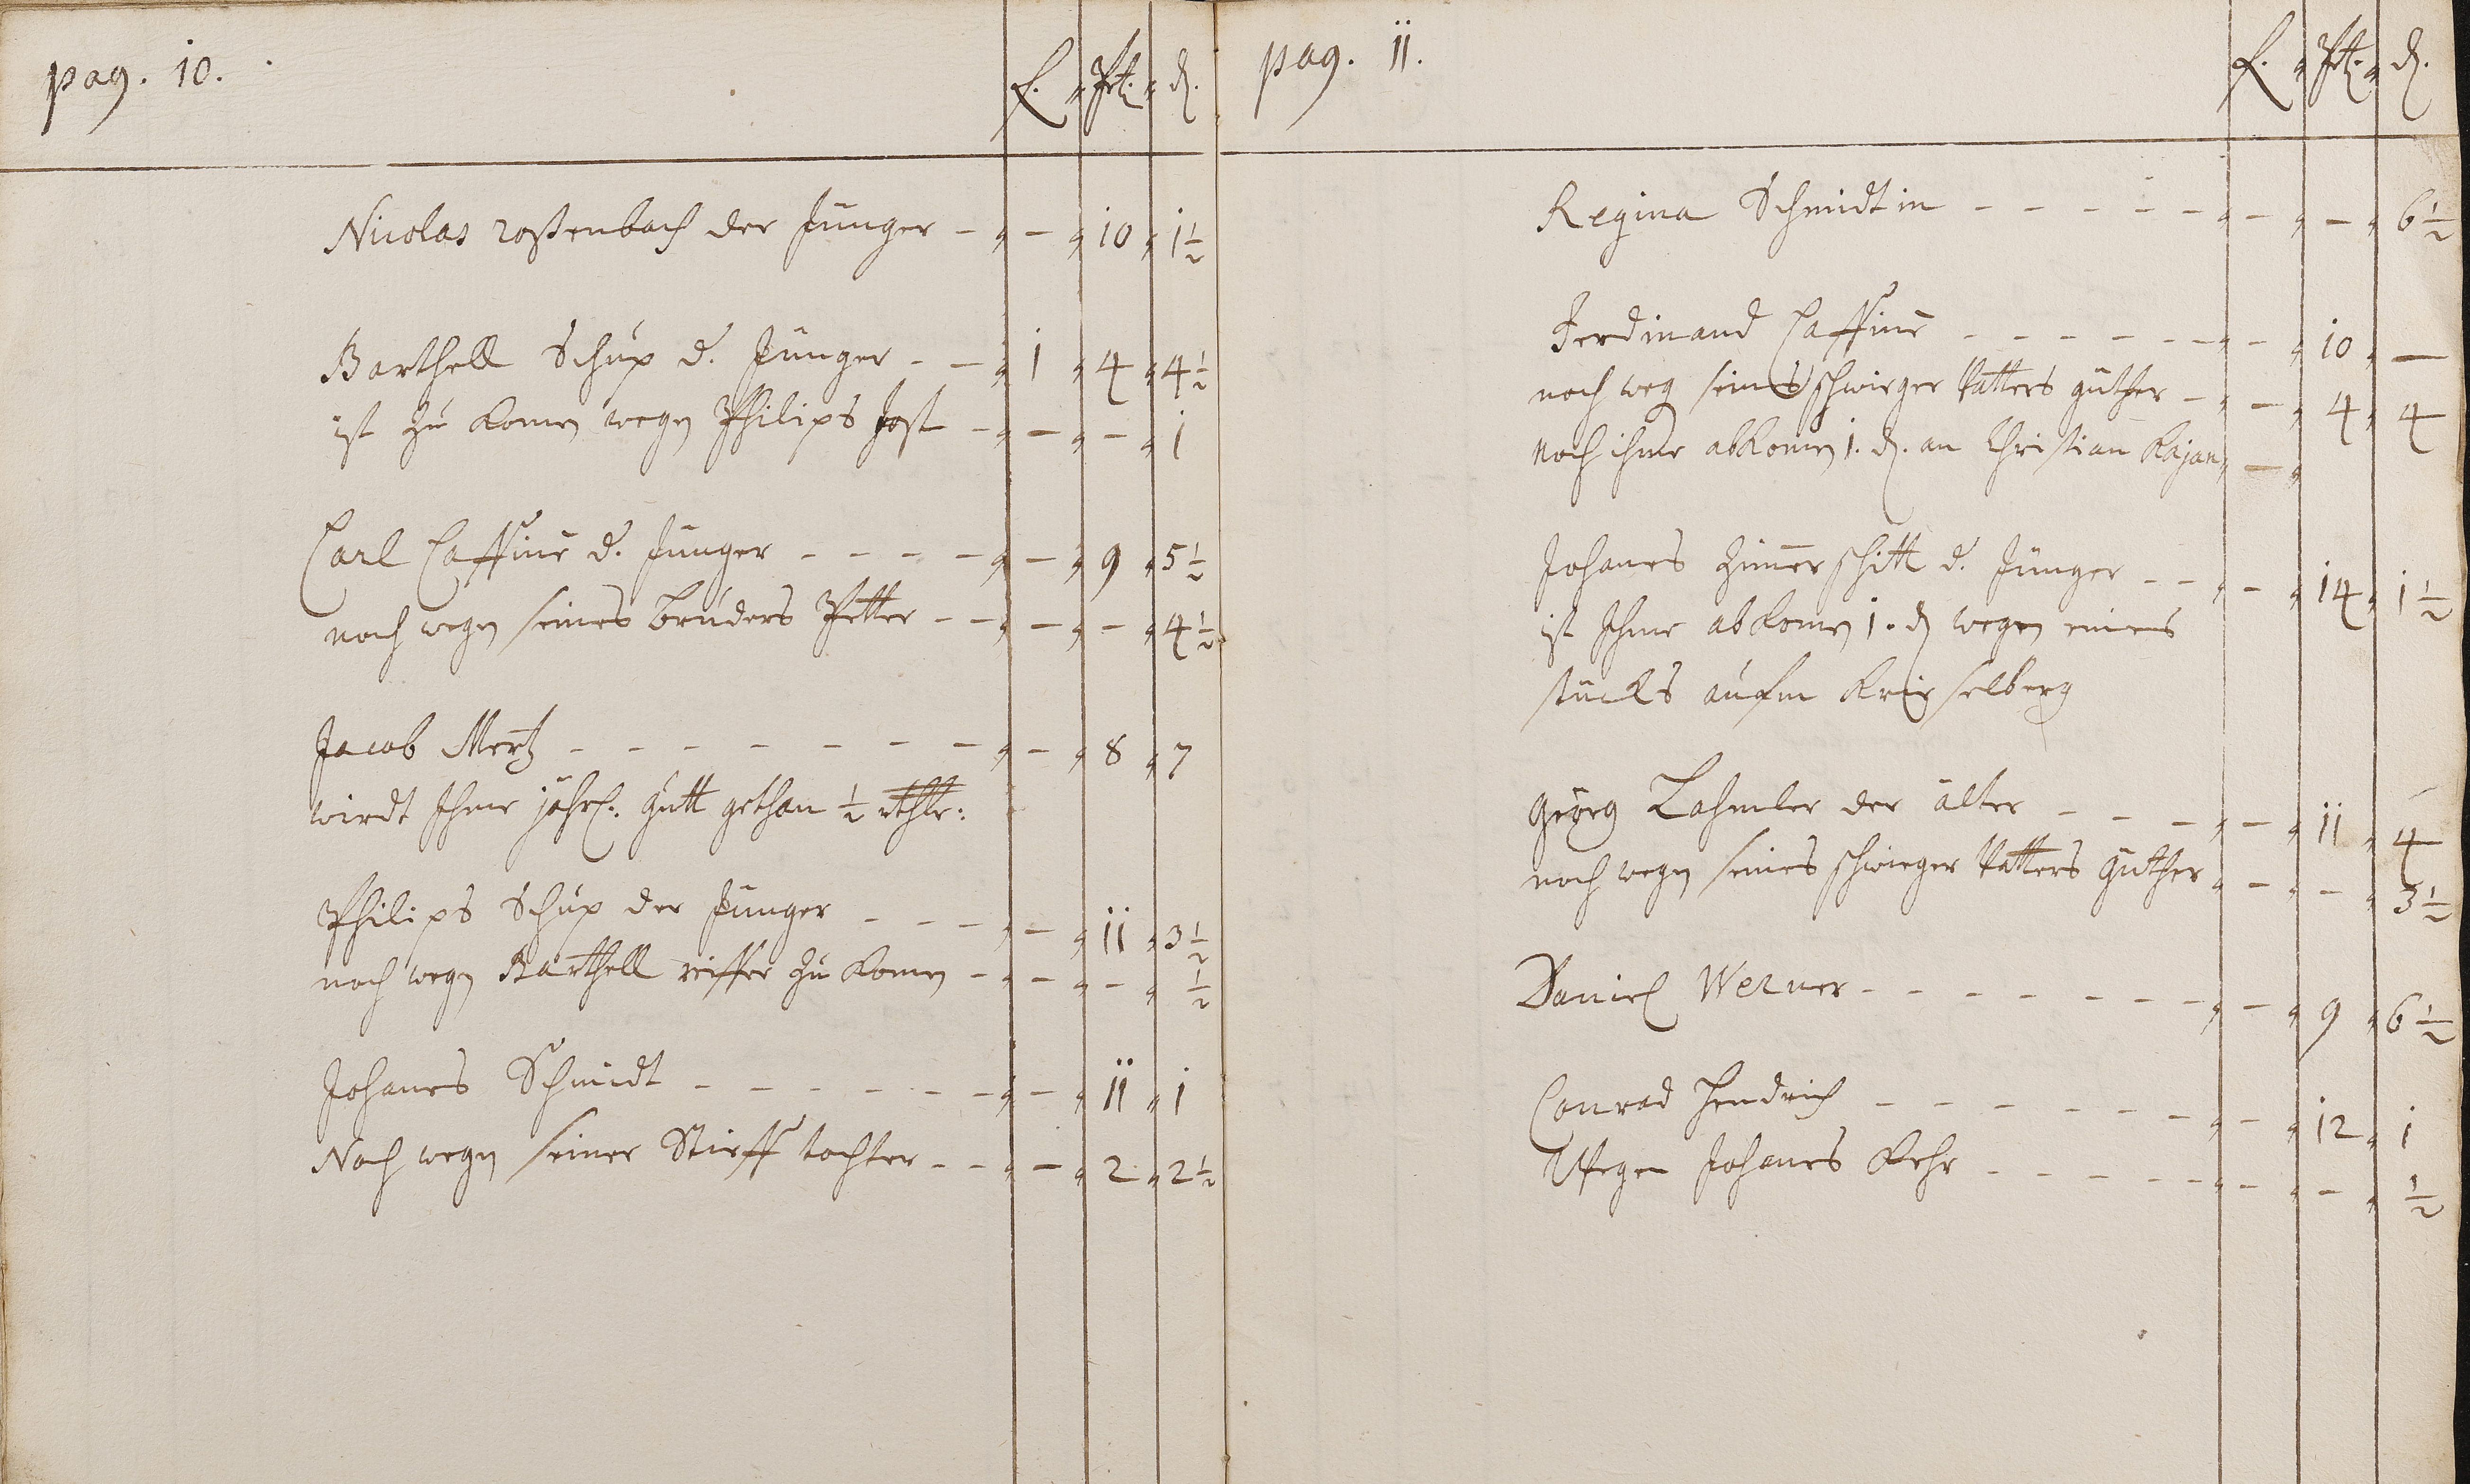 pag. 10.
f. Pt. d.
Nicolas roßenbach der Junger - - 10 1½
Barthell Schup d. Junger - - 1 4 4½
ist zu komen wegen Philips Jost - - - 1
Carl Caffine d. Junger - - - - - 9 5½
noch wegen seines bruders Petter - - - - 4½
Jacob Mertz - - - - - - - - 8 7
wirdt Ihme jährl. gutt gethan ½ rthlr:
Philips Schup der Junger - - - - 11 3½
noch wegen Barthell reiffer zu komen - - - ½
Johanes Schmidt - - - - - - - 11 1
Noch wegen seiner Stieff tochter - - - 2 2½
pag. 11.
f. Pt. d.
Regina Schmidtin - - - - - - - 6½
Ferdinand Caffine - - - - - - - 10 -
noch weg seines schwieger Vatters guther - - 4 4
noch ihme abkomen 1. d. an Christian Kajan -
Johanes Zimerschitt d. Junger - - - 14 1½
ist Ihme abkomen 1. d wegen eines
stucks aufm
Georg Lahmler der alter - - - - 11 4
noch wegen seines schwieger Vatters guther - - 3½
Daniel Werner - - - - - - - - 9 6½
Conrad Hendrich - - - - - - - 12 1
Wegen Johanes Kehr - - - - - - - ½